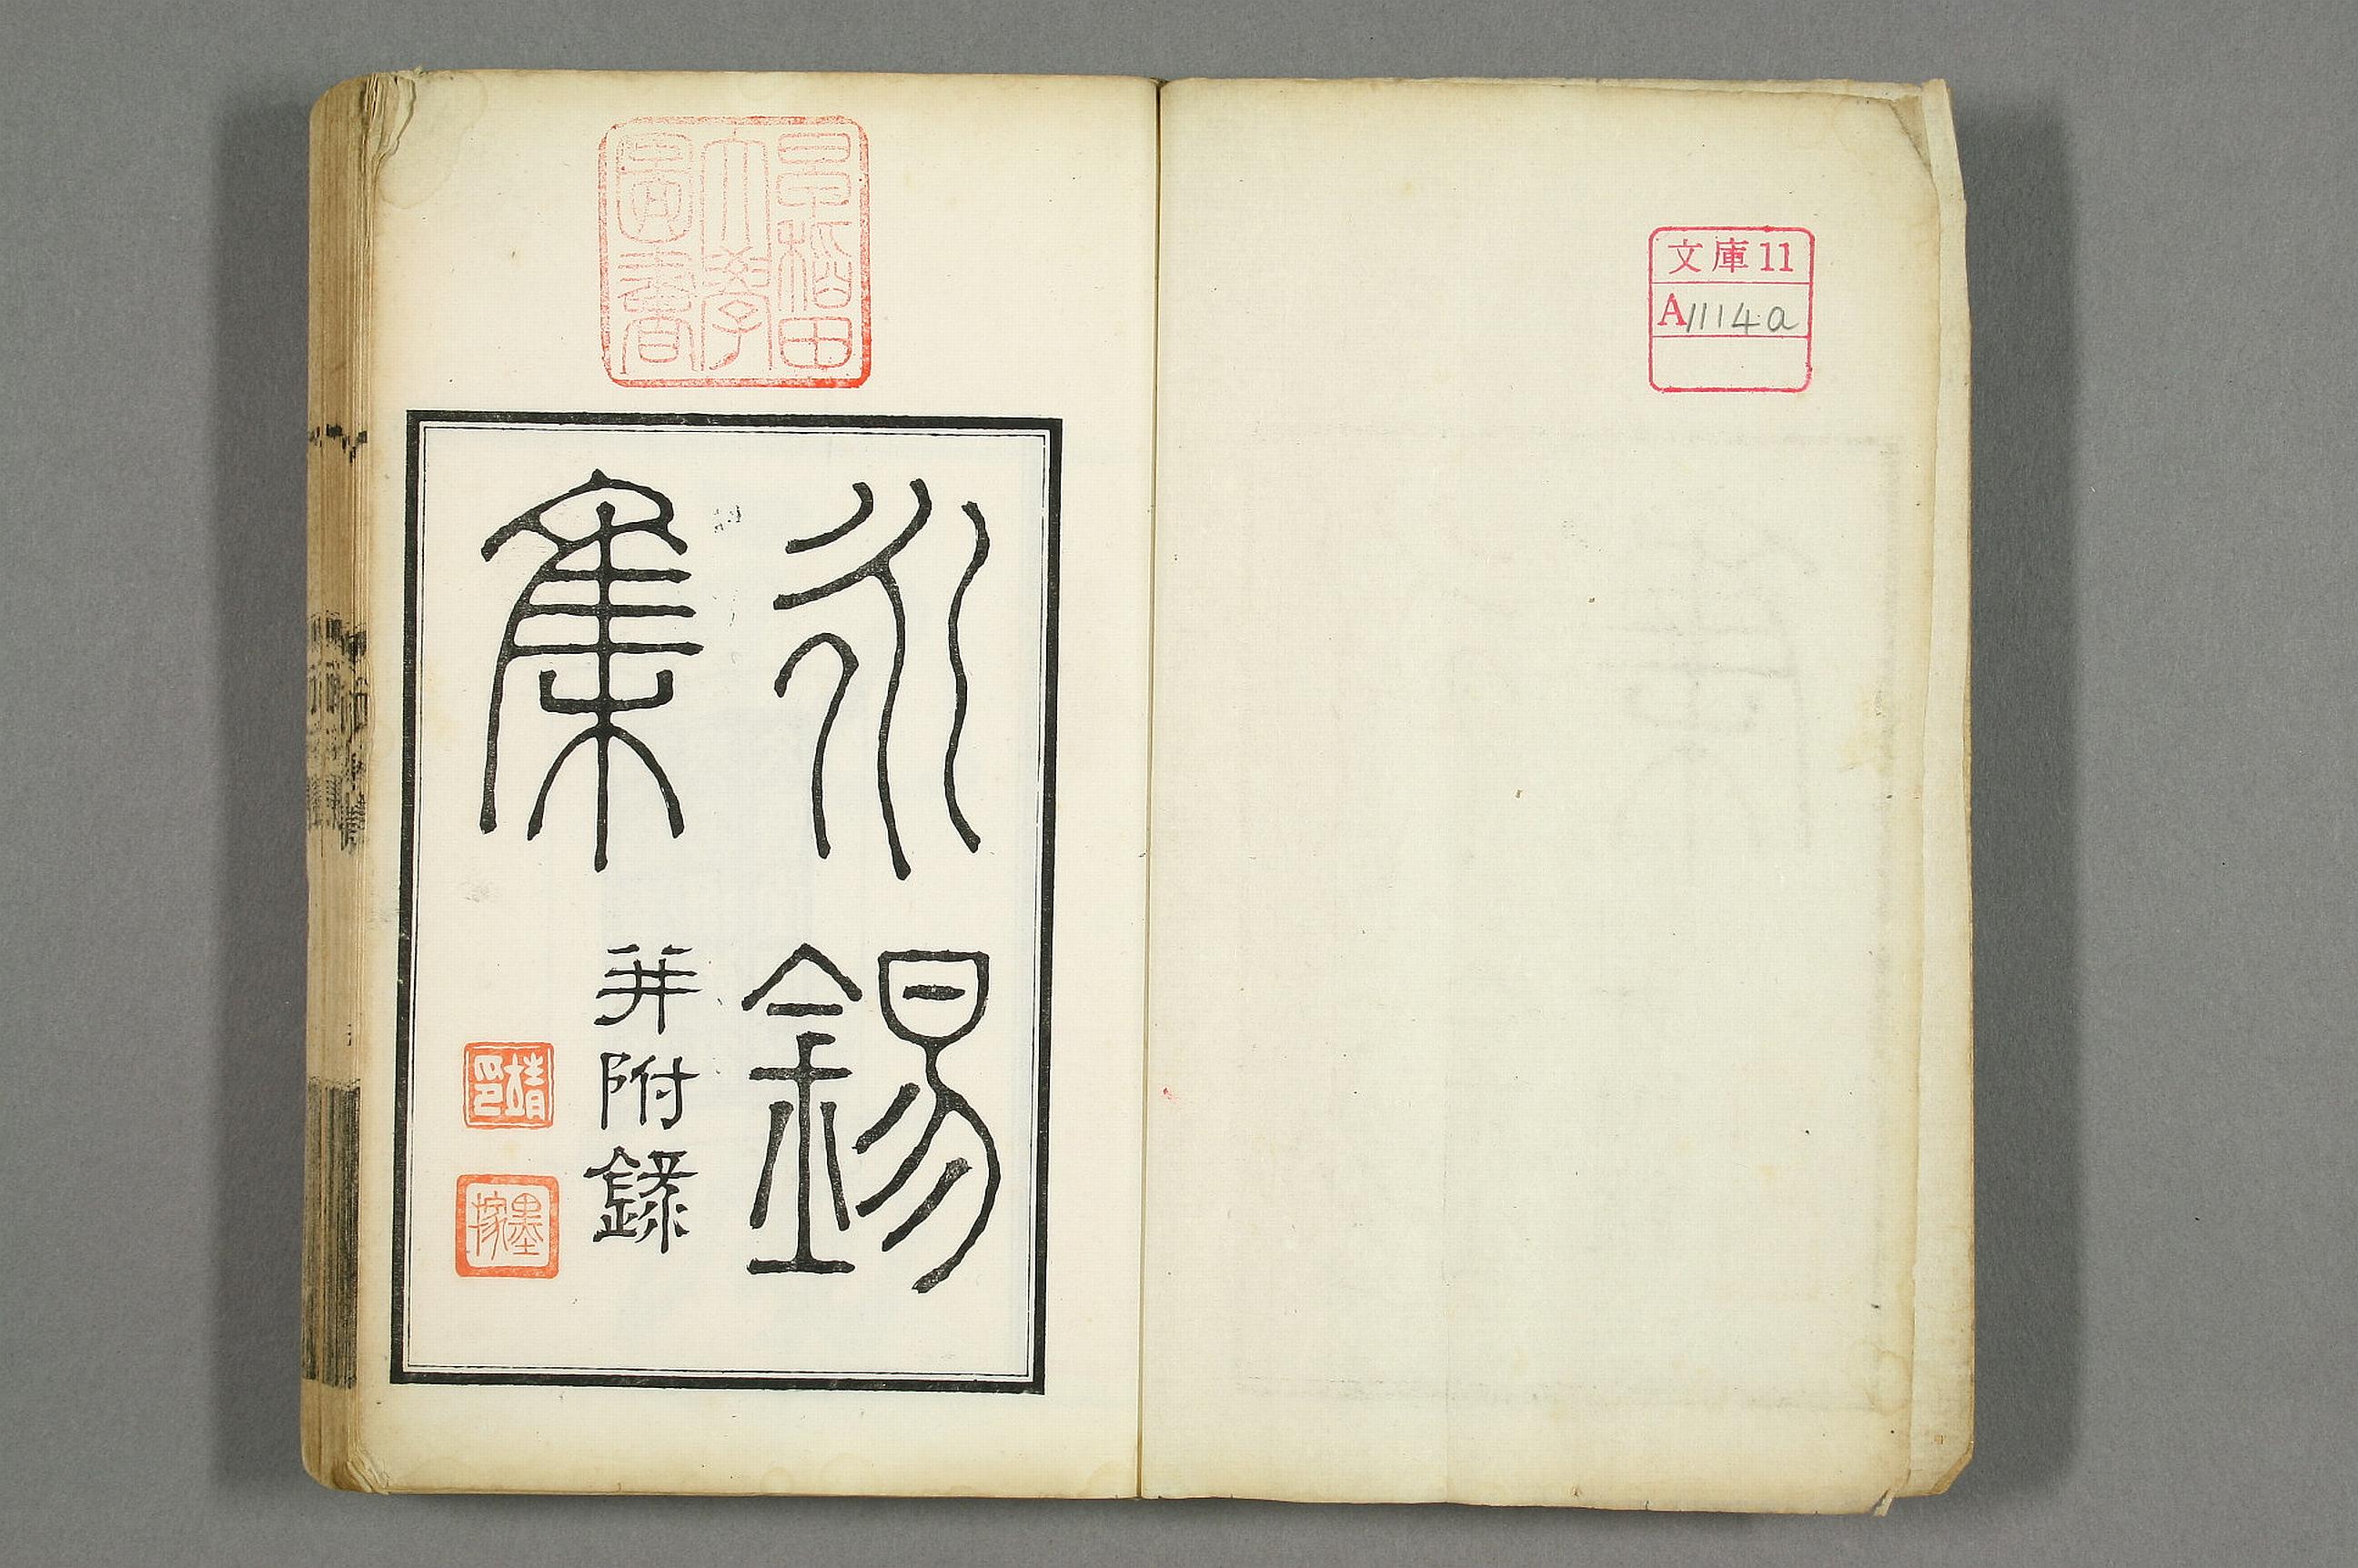 文庫11
A1114a
早稻田
大學
圖書
永錫
集
并附錄
靖印
墨稼